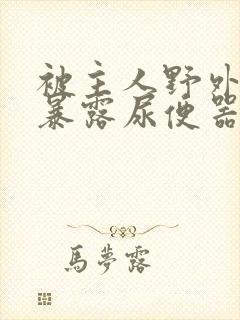 被主人野外
暴露尿便器
馬夢露